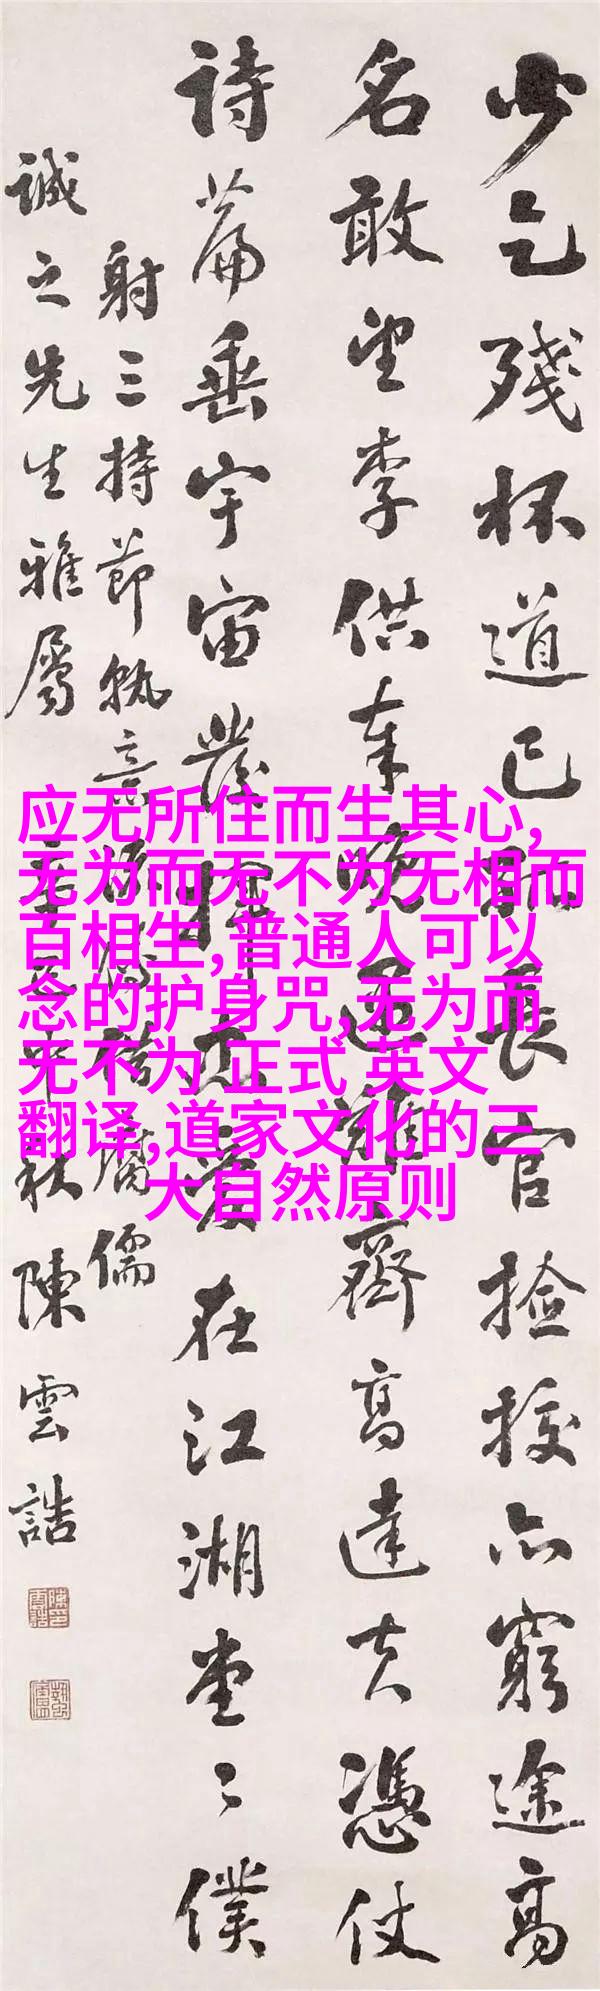 少乞殘杯道已
長官撿挍亦窮途高
名敢望李供奉晚
遇誰齊高達夫憑仗
詩篇垂宇宙發揮
在江湖堂〻僕
射三持節
儒
誠之先生雅屬
中秋陳雲誥
应无所住而生其心,
无为而无不为无相而
百相生,普通人可以
念的护身咒,无为而
无不为 正式 英文
翻译,道家文化的三
大自然原则